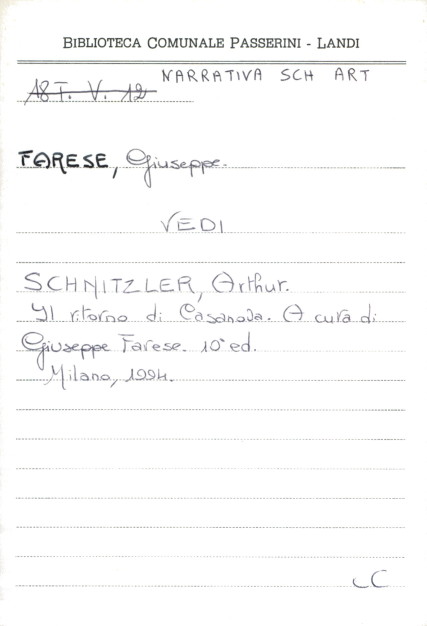 BIBLIOTECA COMUNALE PASSERINI - LANDI
NARRATIVA SCH ART
18 T. V. 12
FARESE, Giuseppe.
VEDI
SCHNITZLER, Arthur.
Il ritorno di Casanova. A cura di
Giuseppe Farese. 10ª ed.
Milano, 1994.
LC